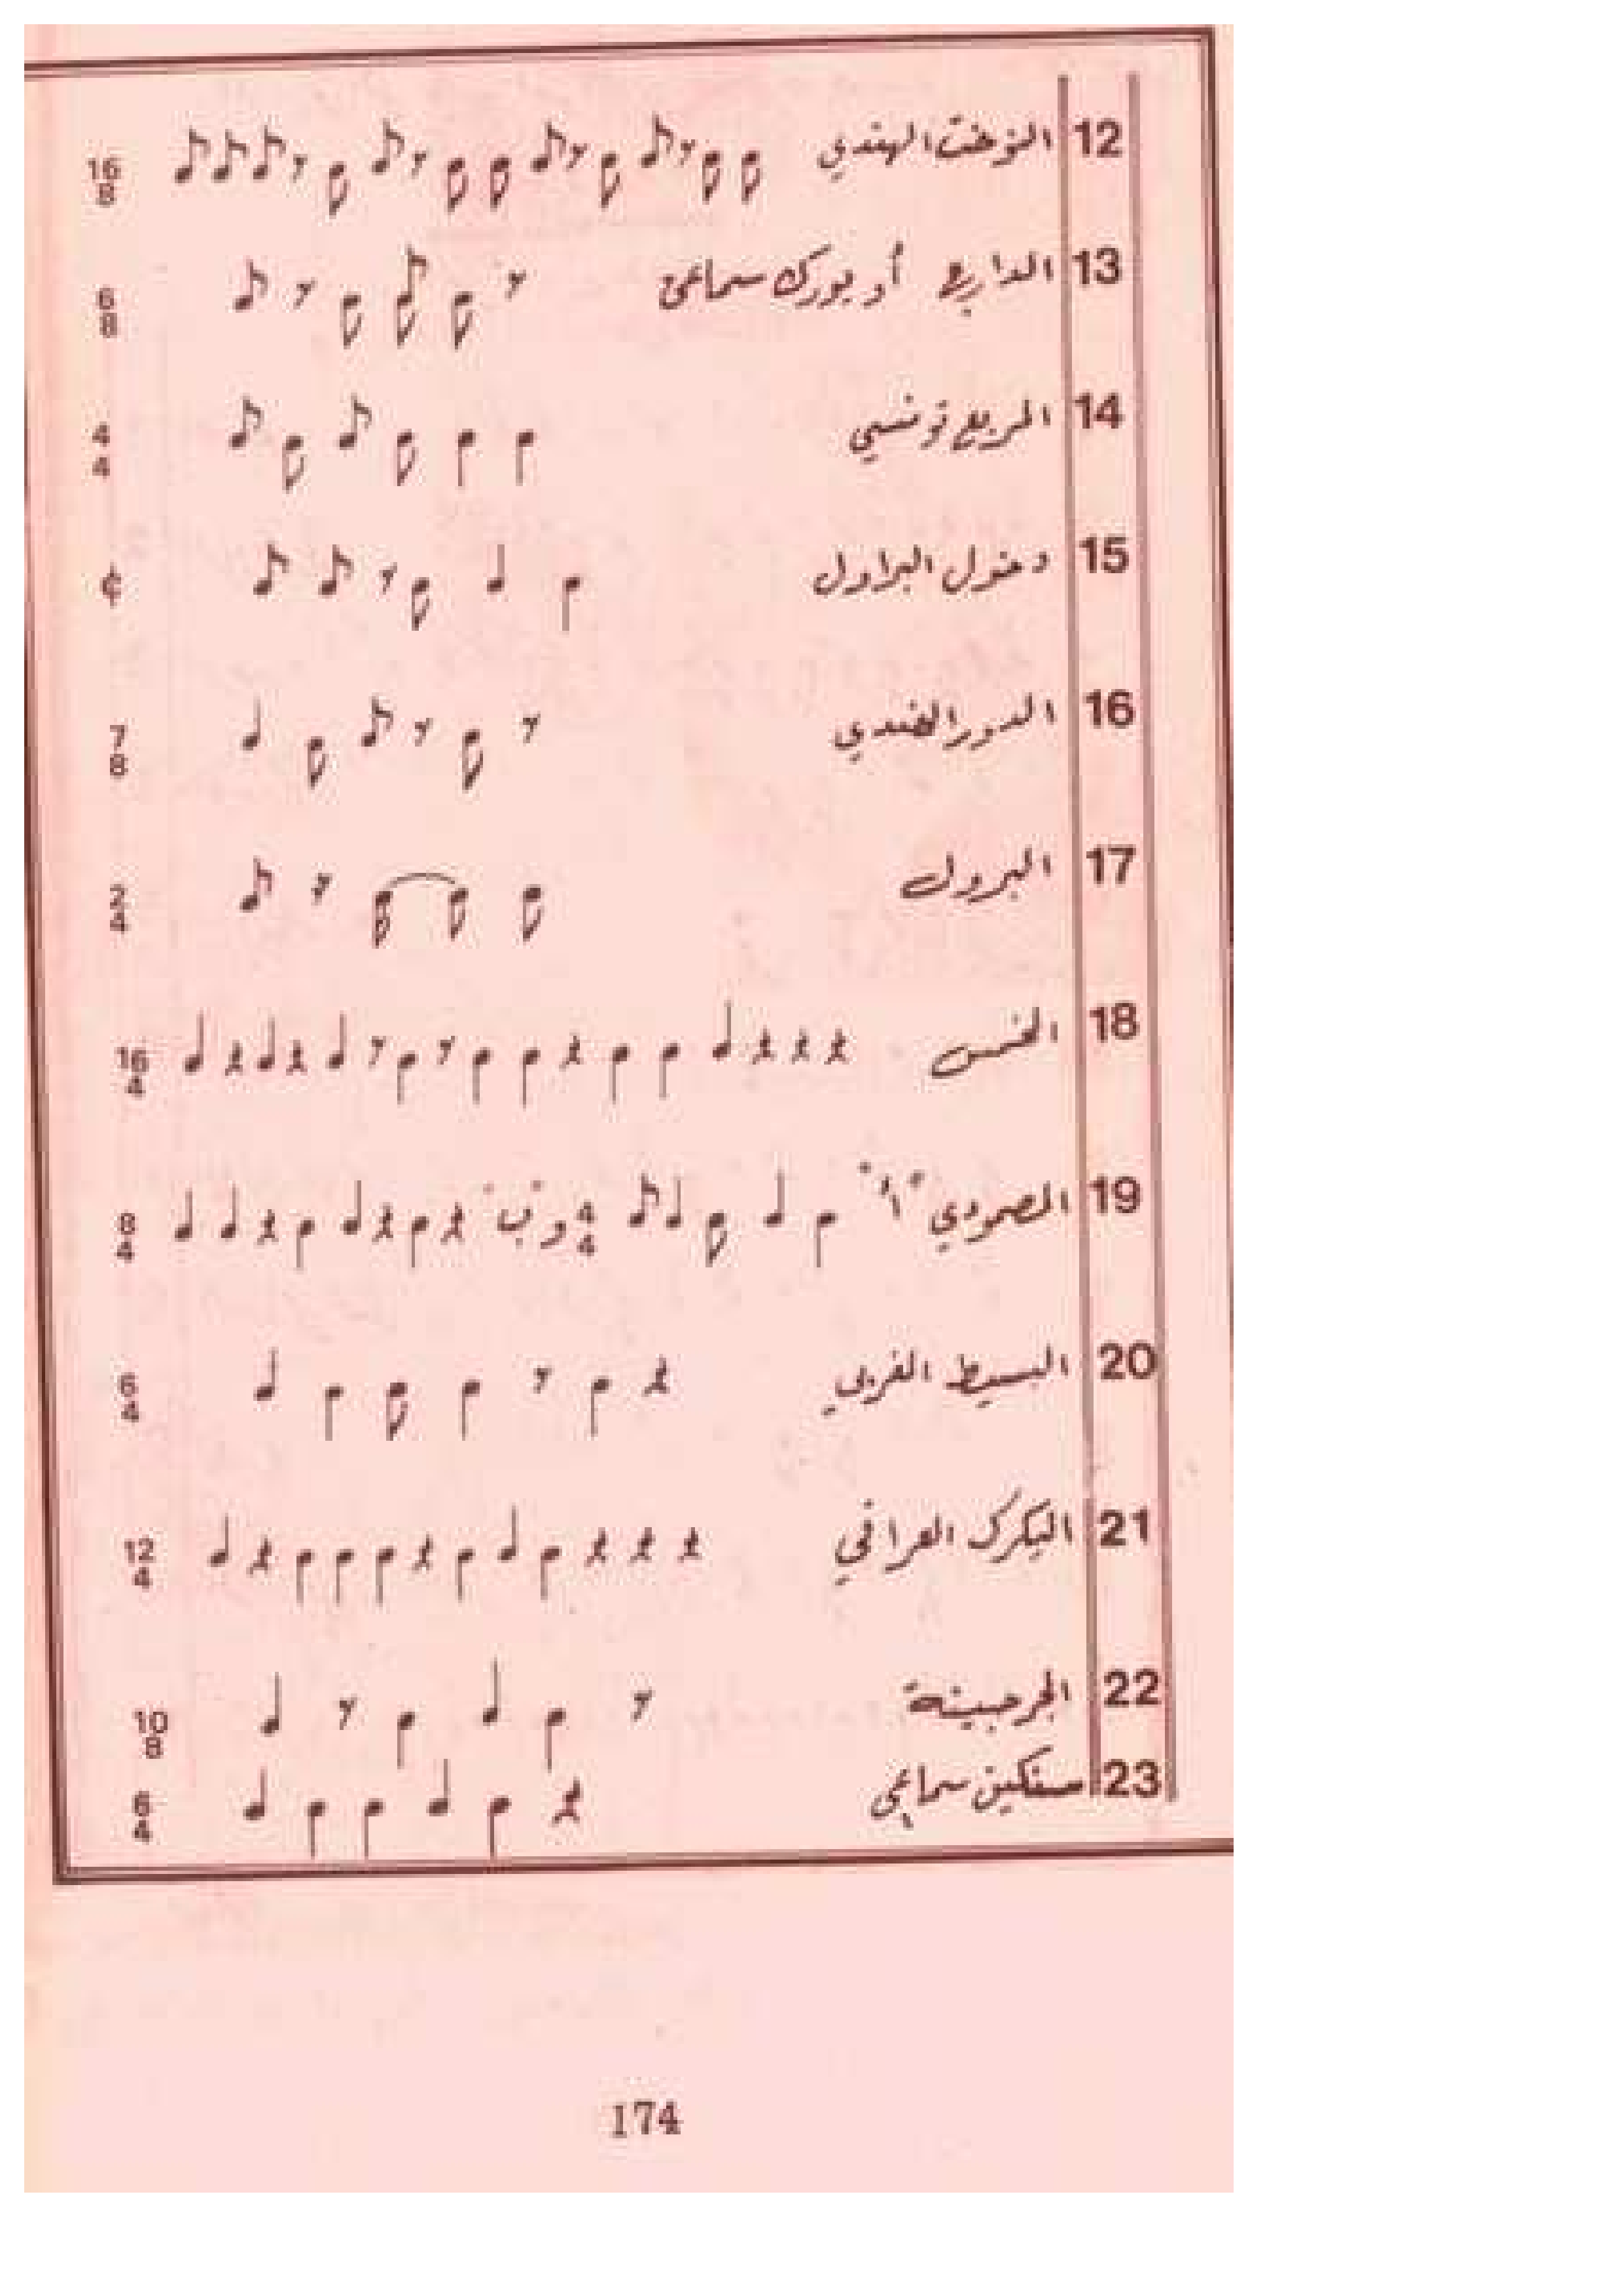 12 النوخت الهندي 16/8
13 الدارج أو يورك سماعي 6/8
14 المربع تونسي 4/4
15 دخول البراول ¢
16 الدور الهندي 7/8
17 البرول 2/4
18 المخمس 16/4
19 المصمودي "أ" 4/4 و "ب" 8/4
20 البسيط المغربي 6/4
21 اليكرك العراقي 12/4
22 الجرجينة 10/8
23 سنكين سماعي 6/4
174